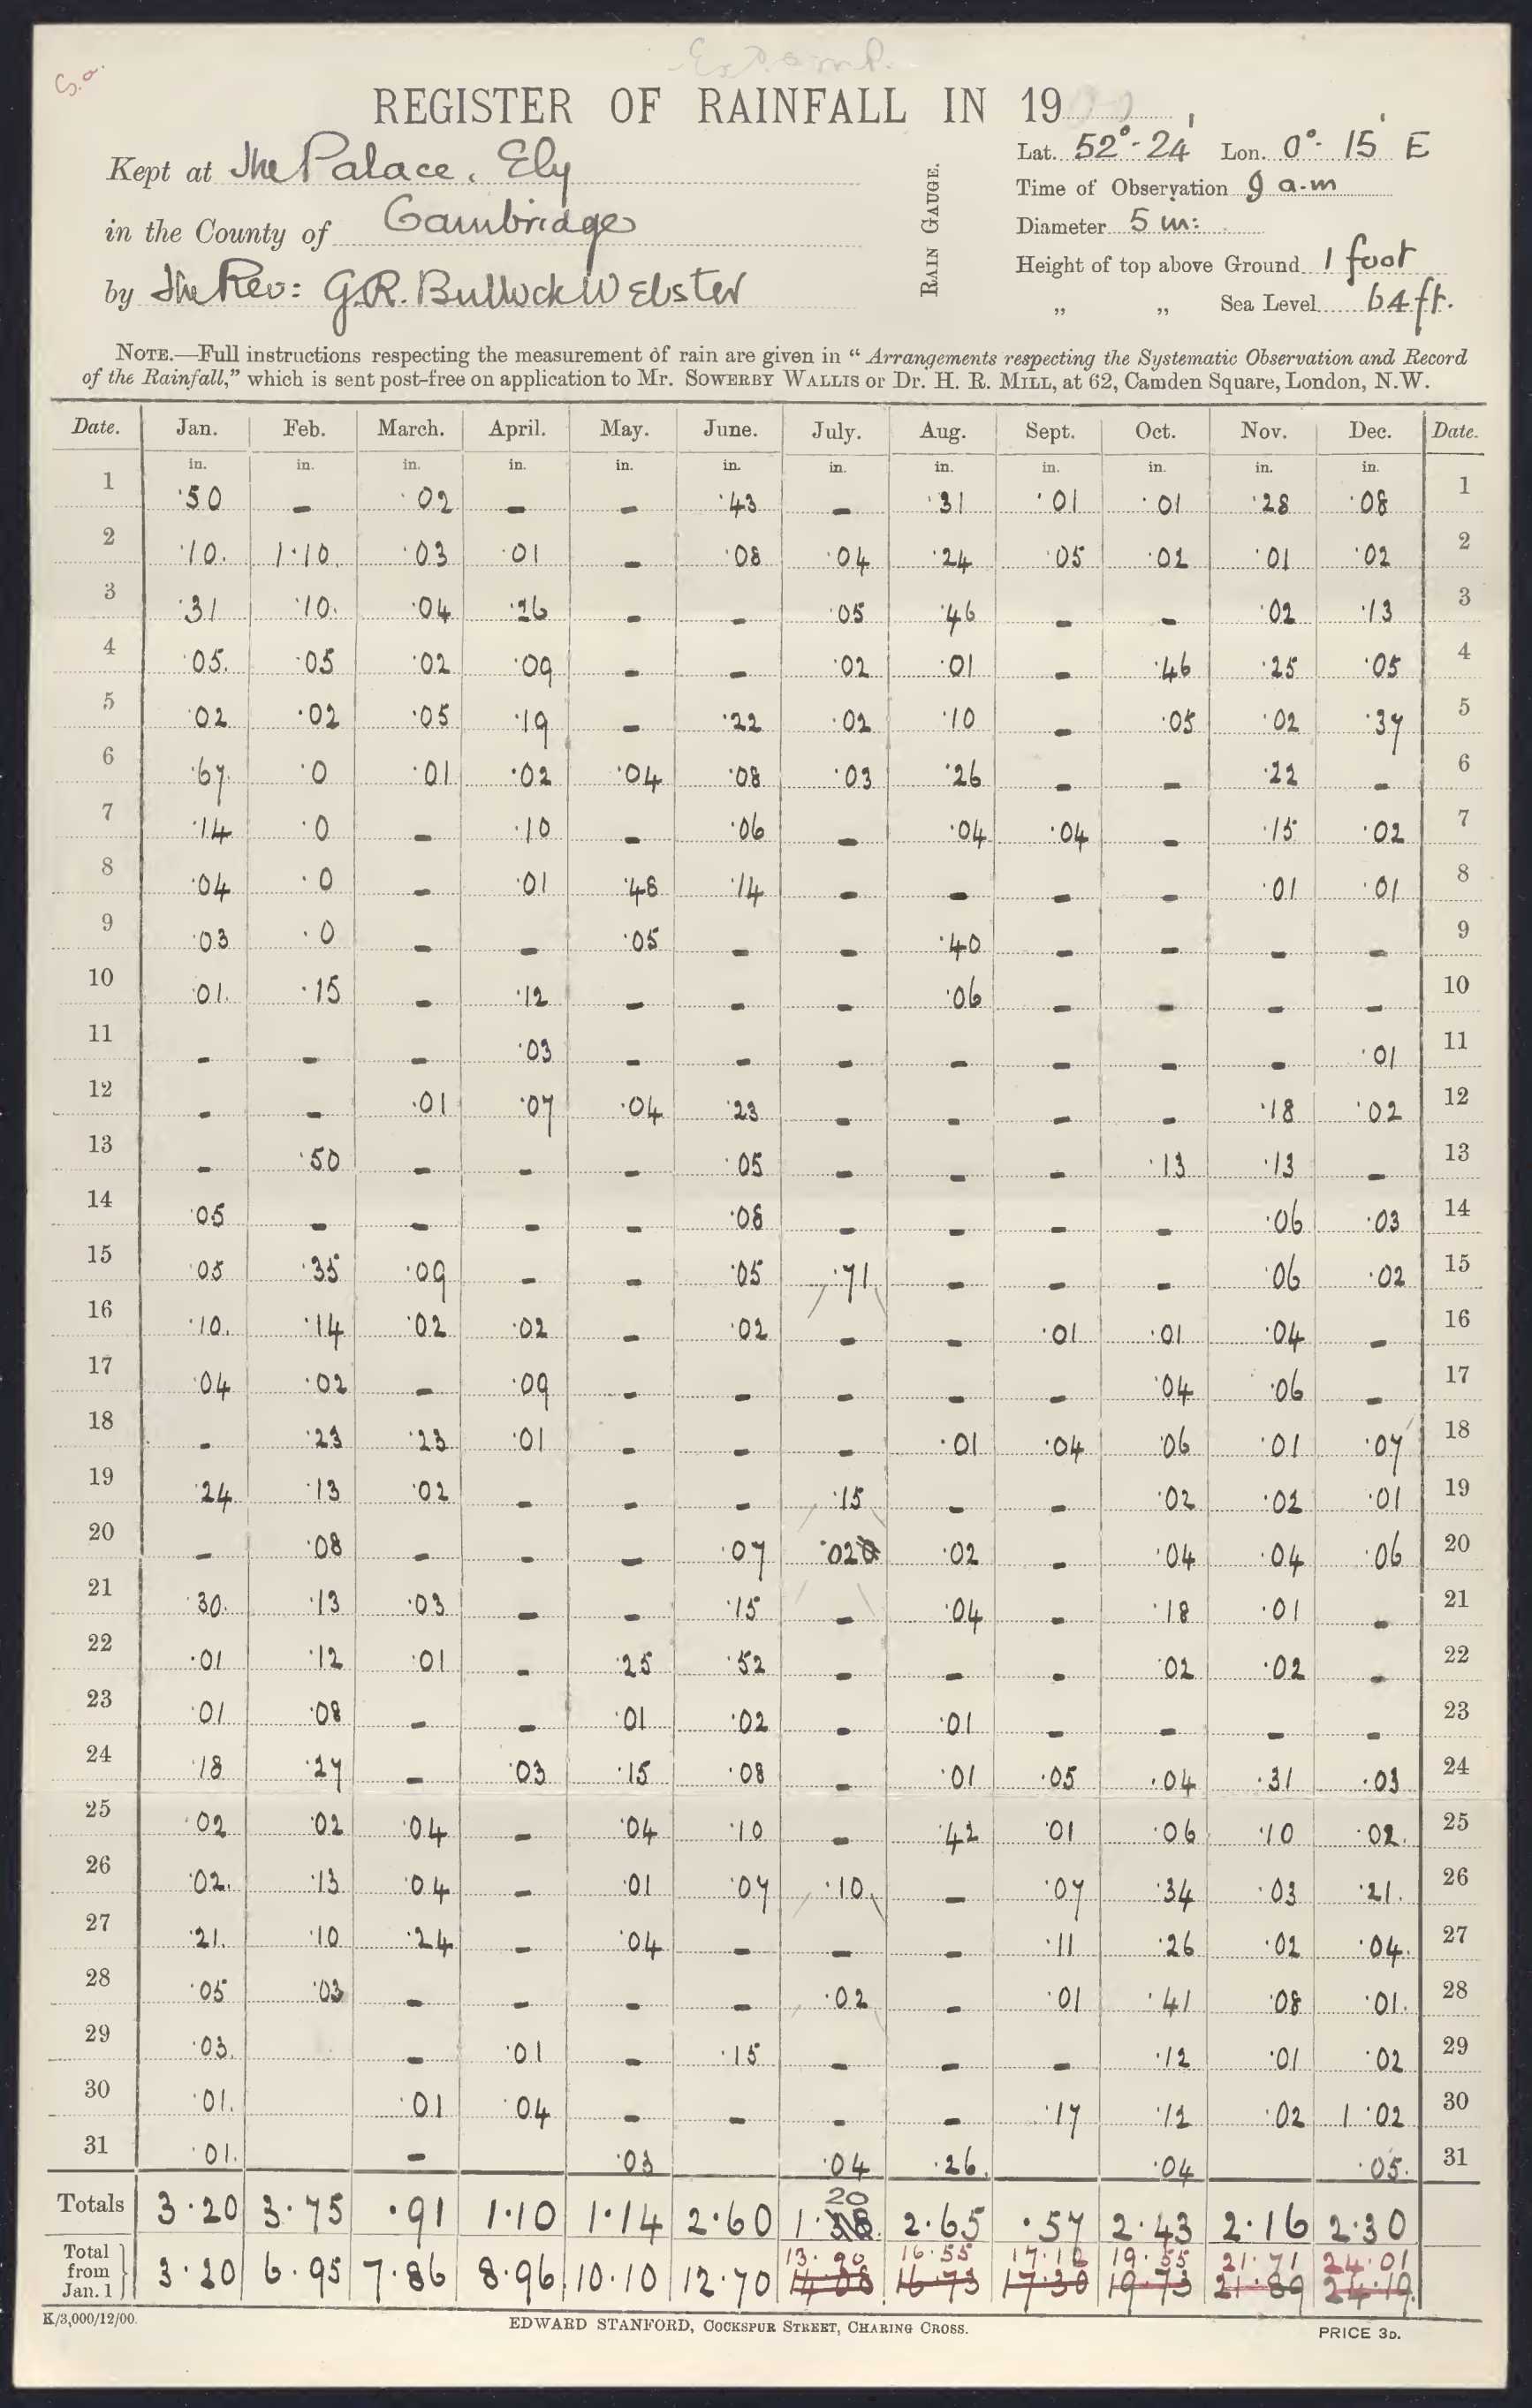 S.a.
REGISTER OF RAINFALL IN 19
Kept at The Palace, Ely
in the County of Cambridge
by The Rev: G.R. Bullock Webster
RAIN GAUGE.
Lat. 52°-24' Lon. 0°- 15' E
Time of Observation 9 a.m
Diameter 5 in:
Height of top above Ground 1 foot
„ „ Sea Level 64 ft.
NOTE.—Full instructions respecting the measurement of rain are given in “Arrangements respecting the Systematic Observation and Record
of the Rainfall,” which is sent post-free on application to Mr. SOWERBY WALLIS or Dr. H. R. MILL, at 62, Camden Square, London, N.W.
Date. Jan. Feb. March. April. May. June. July. Aug. Sept. Oct. Nov. Dec. Date.
in. in. in. in. in. in. in. in. in. in. in. in.
1 ·50 – ·02 – – ·43 – ·31 ·01 ·01 ·28 ·08 1
2 ·10. 1·10. ·03 ·01 – ·08 ·04 ·24 ·05 ·02 ·01 ·02 2
3 ·31 ·10. ·04 ·26 – – ·05 ·46 – – ·02 ·13 3
4 ·05. ·05 ·02 ·09 – – ·02 ·01 – ·46 ·25 ·05 4
5 ·02 ·02 ·05 ·19 – ·22 ·02 ·10 – ·05 ·02 ·37 5
6 ·67. ·0 ·01 ·02 ·04 ·08 ·03 ·26 – – ·22 – 6
7 ·14 ·0 – ·10 – ·06 – ·04 ·04 – ·15 ·02 7
8 ·04 ·0 – ·01 ·48 ·14 – – – – ·01 ·01 8
9 ·03 ·0 – – ·05 – – ·40 – – – – 9
10 ·01. ·15 – ·12 – – – ·06 – – – – 10
11 – – – ·03 – – – – – – – ·01 11
12 – – ·01 ·07 ·04 ·23 – – – – ·18 ·02 12
13 – ·50 – – – ·05 – – – ·13 ·13 – 13
14 ·05 – – – – ·08 – – – – ·06 ·03 14
15 ·05 ·35 ·09 – – ·05 ·71 – – – ·06 ·02 15
16 ·10. ·14 ·02 ·02 – ·02 – – ·01 ·01 ·04 – 16
17 ·04 ·02 – ·09 – – – – – ·04 ·06 – 17
18 – ·23 ·23 ·01 – – – ·01 ·04 ·06 ·01 ·07 18
19 ·24 ·13 ·02 – – – ·15 – – ·02 ·02 ·01 19
20 – ·08 – – – ·07 ·02 ·02 – ·04 ·04 ·06 20
21 ·30. ·13 ·03 – – ·15 – ·04 – ·18 ·01 – 21
22 ·01 ·12 ·01 – ·25 ·52 – – – ·02 ·02 – 22
23 ·01 ·08 – – ·01 ·02 – ·01 – – – – 23
24 ·18 ·27 – ·03 ·15 ·08 – ·01 ·05 ·04 ·31 ·03 24
25 ·02 ·02 ·04 – ·04 ·10 – ·42 ·01 ·06 ·10 ·02. 25
26 ·02. ·13 ·04 – ·01 ·07 ·10 – ·07 ·34 ·03 ·21. 26
27 ·21. ·10 ·24 – ·04 – – – ·11 ·26 ·02 ·04. 27
28 ·05 ·03 – – – – ·02 – ·01 ·41 ·08 ·01. 28
29 ·03. – ·01 – ·15 – – – ·12 ·01 ·02 29
30 ·01. ·01 ·04 – – – – ·17 ·12 ·02 1·02 30
31 ·01. – ·03 ·04 ·26. ·04 ·05. 31
20
Totals 3·20 3·75 ·91 1·10 1·14 2·60 1·38 2·65 ·57 2·43 2·16 2·30
13·90 16·55 17·12 19·55 21·71 24·01
Total from Jan. 1 3·20 6·95 7·86 8·96 10·10 12·70 14·08 16·73 17·30 19·73 21·89 24·19.
K/3,000/12/00.
EDWARD STANFORD, COCKSPUR STREET, CHARING CROSS.
PRICE 3D.